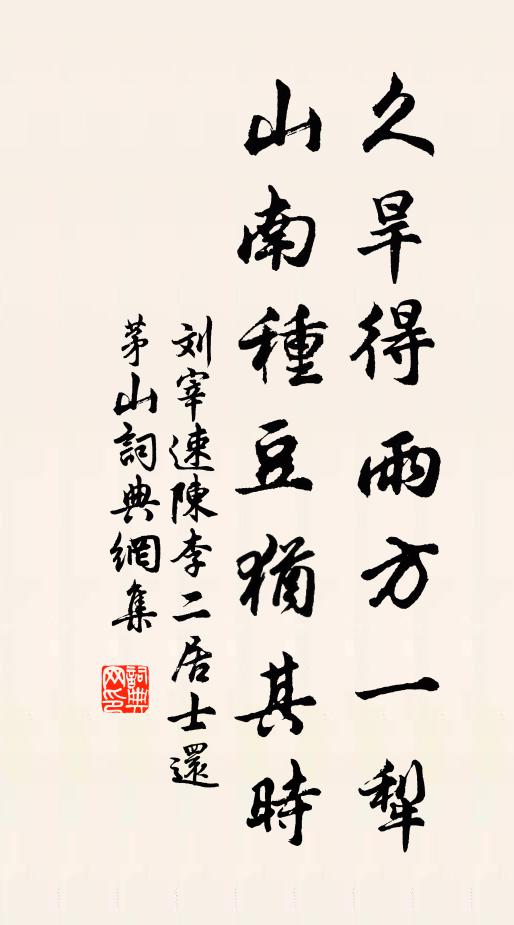 久旱得雨方一犁
山南種豆猶其時
刘宰速陳李二居士還
茅山詞典網集
詞典网印